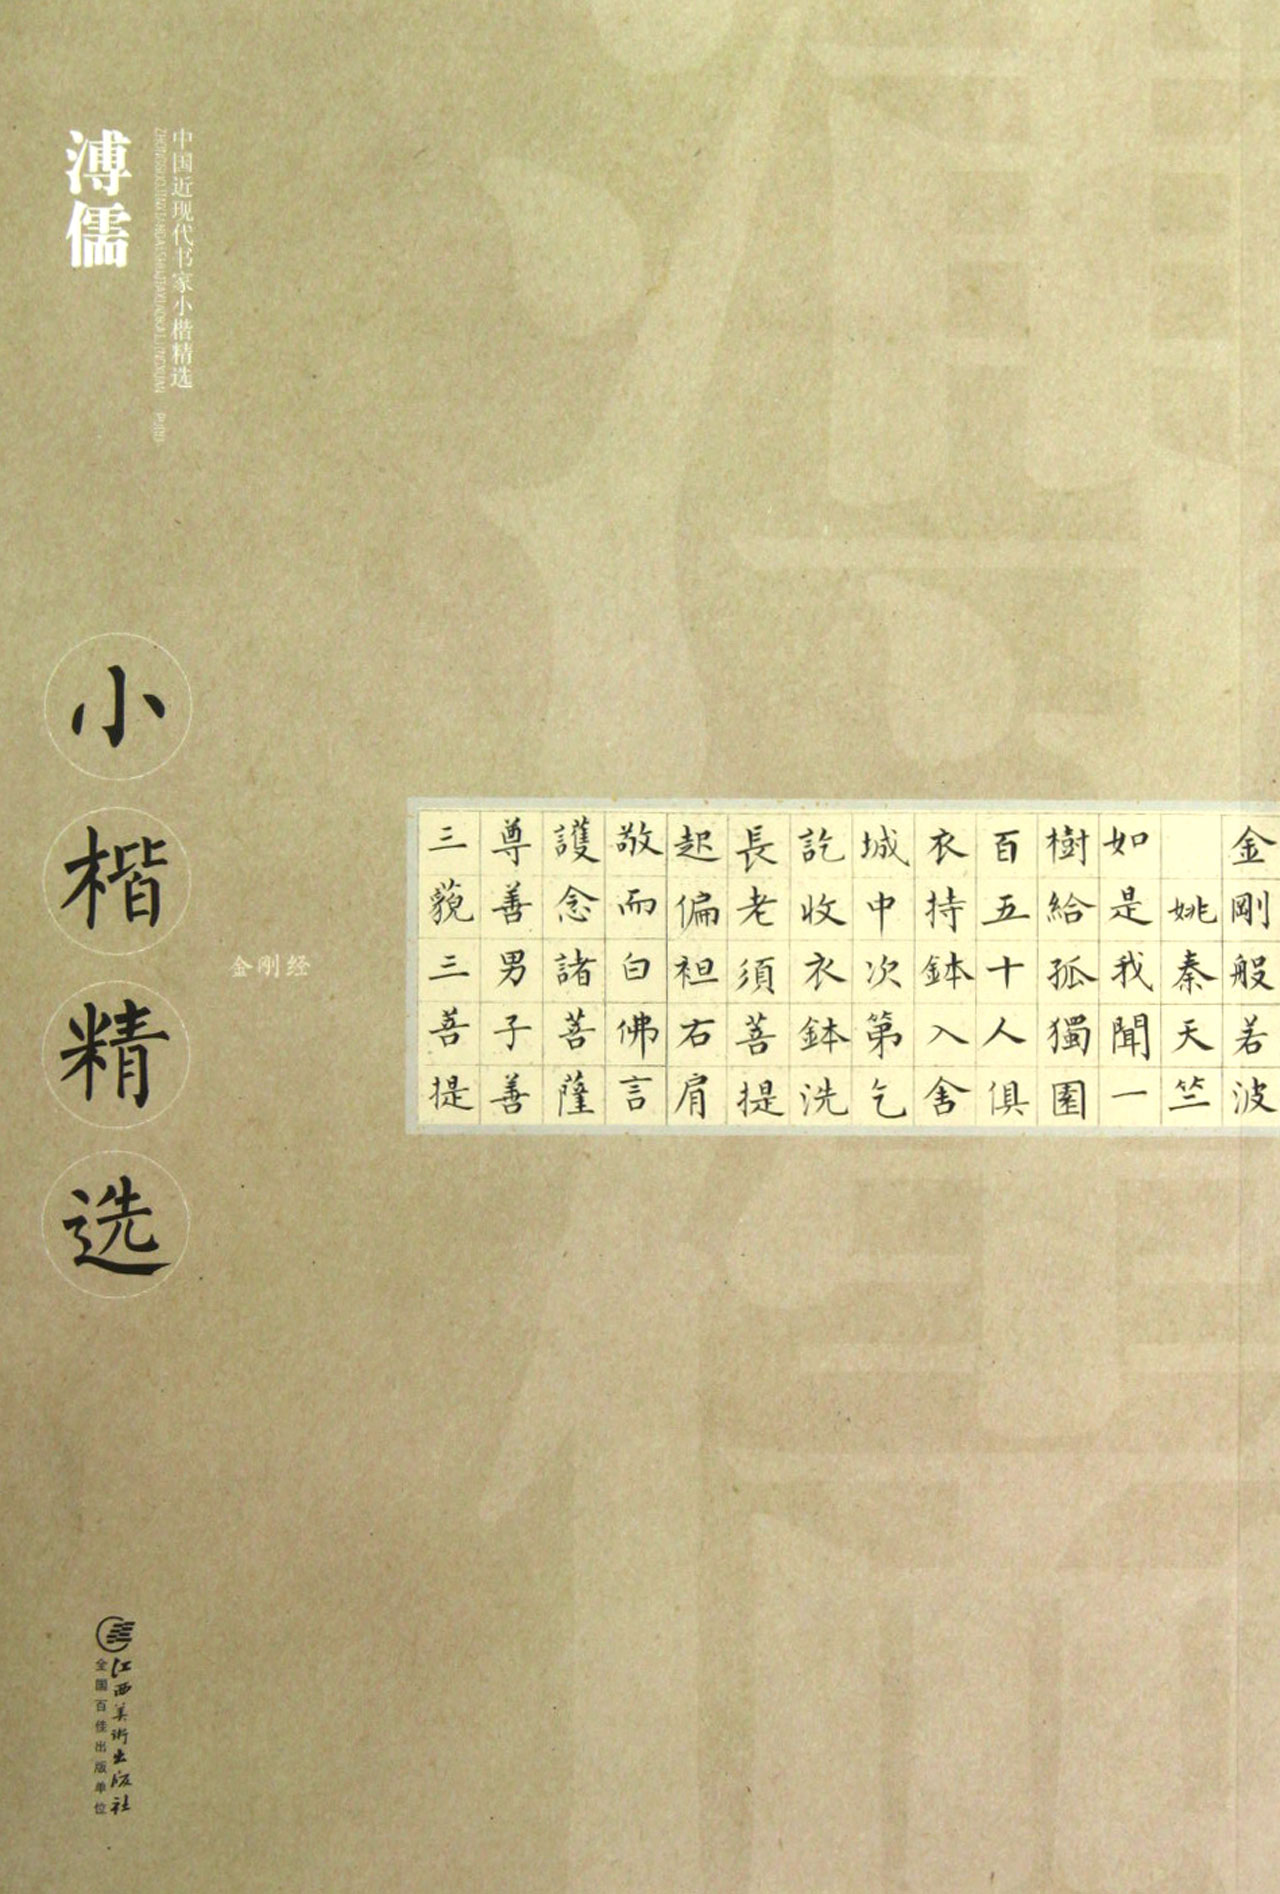 溥儒
中国近现代书家小楷精选
小楷精选
金刚经
金剛般若波
姚秦天竺
如是我聞一
樹給孤獨園
百五十人俱
衣持鉢入舍
城中次第乞
訖收衣鉢洗
長老須菩提
起偏袒右肩
敬而白佛言
護念諸菩薩
尊善男子善
三藐三菩提
江西美術出版社
全国百佳出版单位